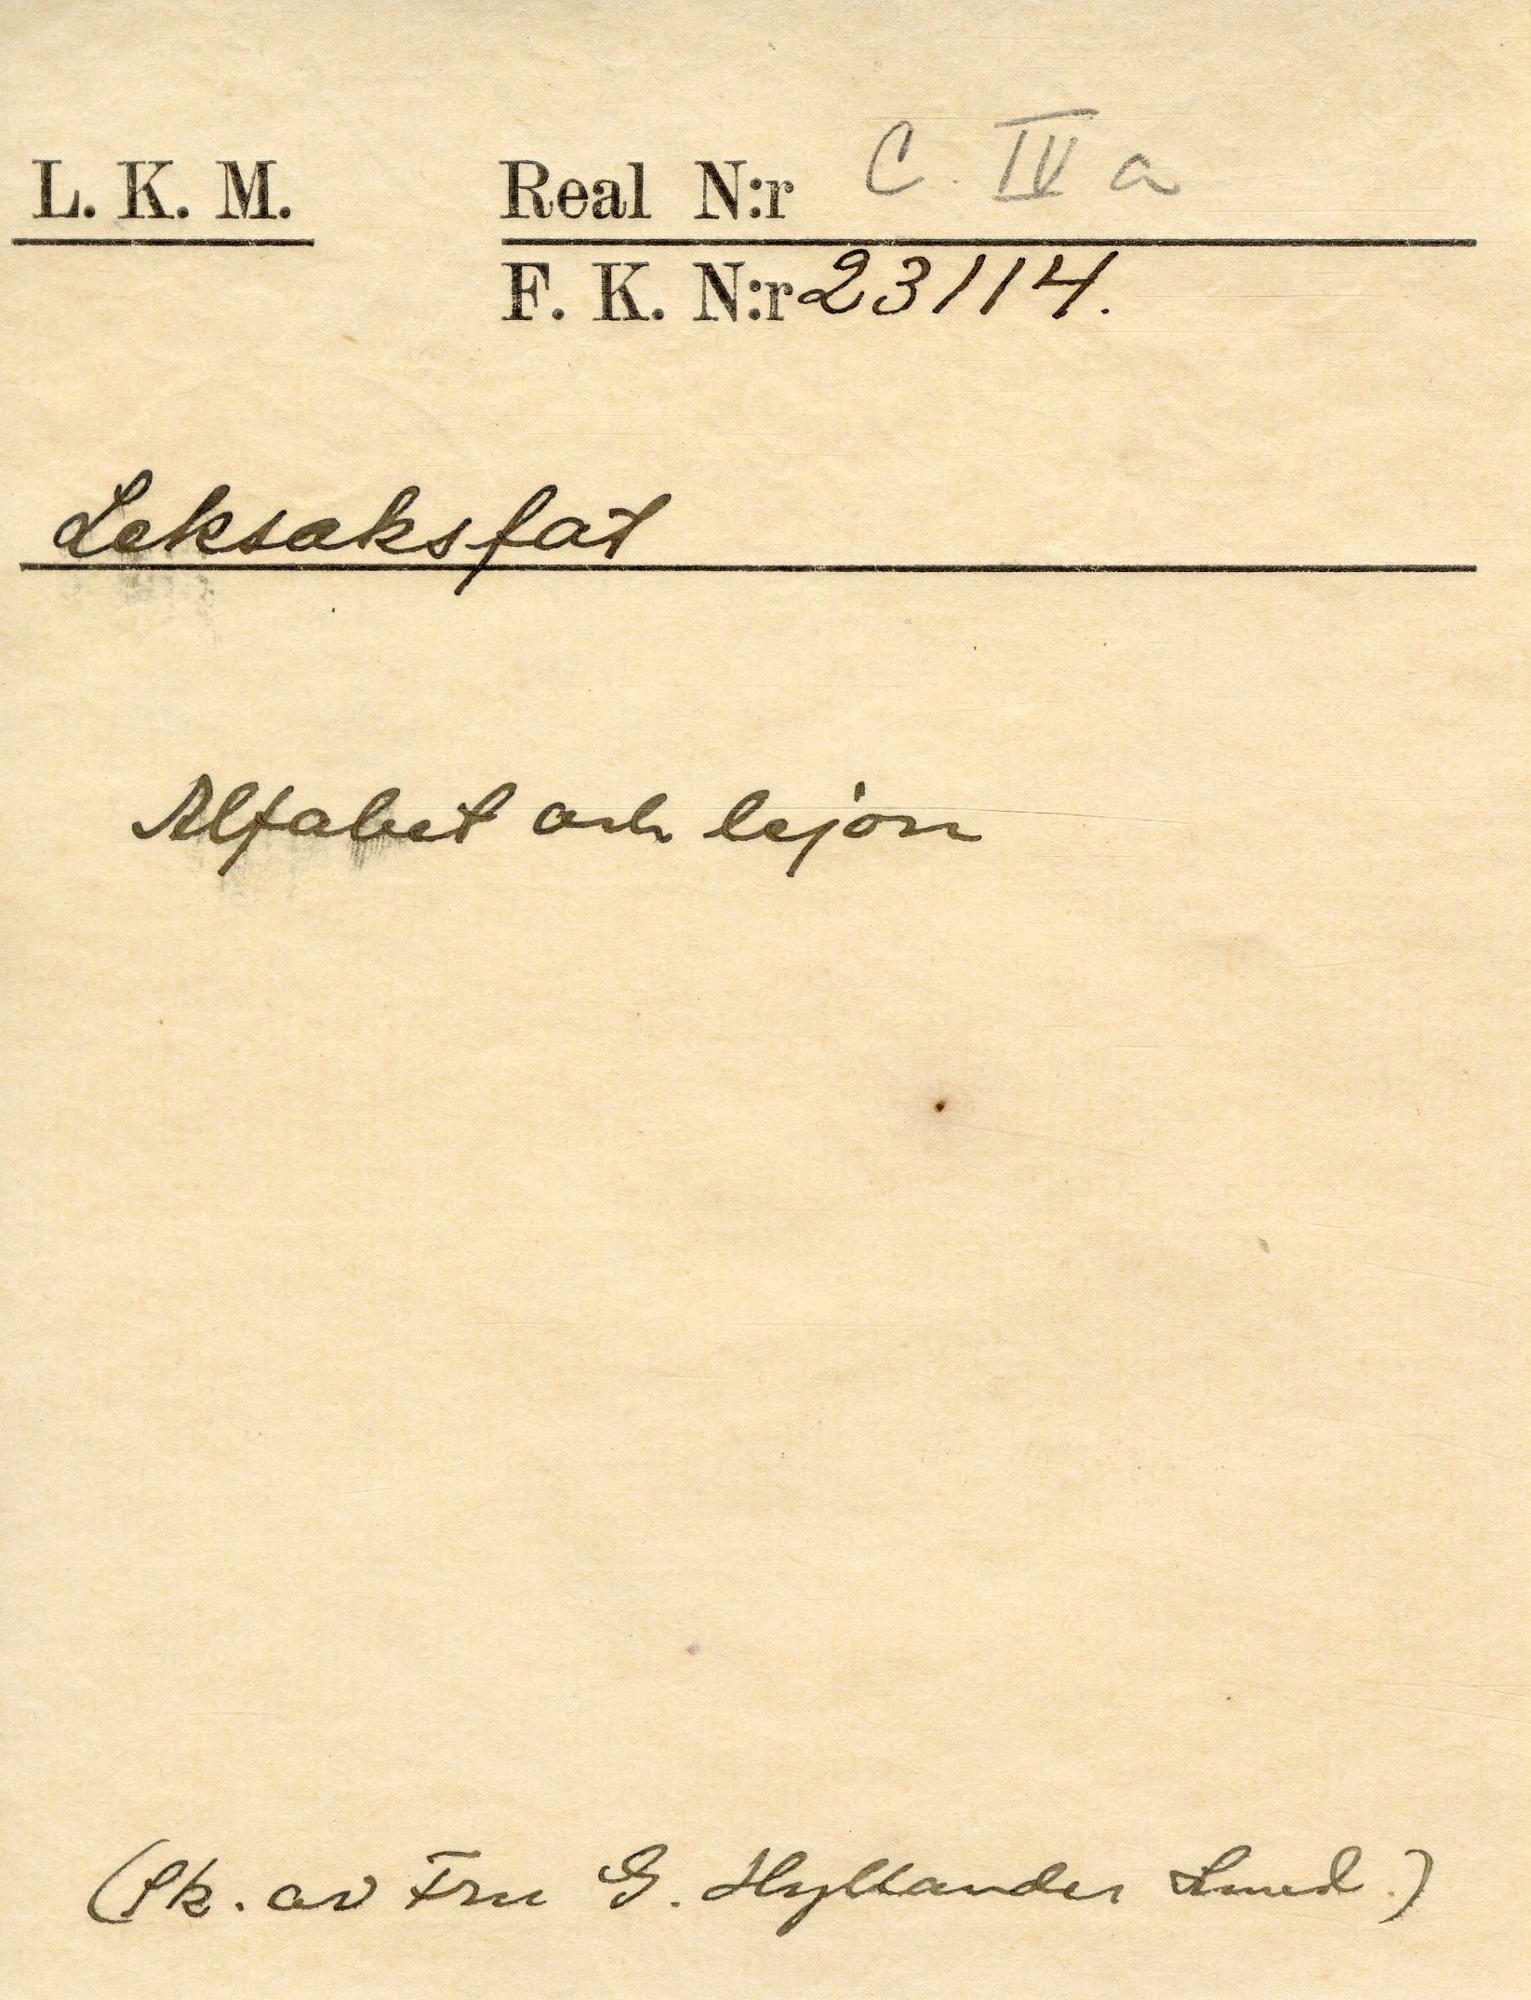 L. K. M. Real N:r C. IV a
F. K. N:r 23114.
Leksaksfat
Alfabet och lejon
(Sk. av Fru G. Hyllander Lund.)